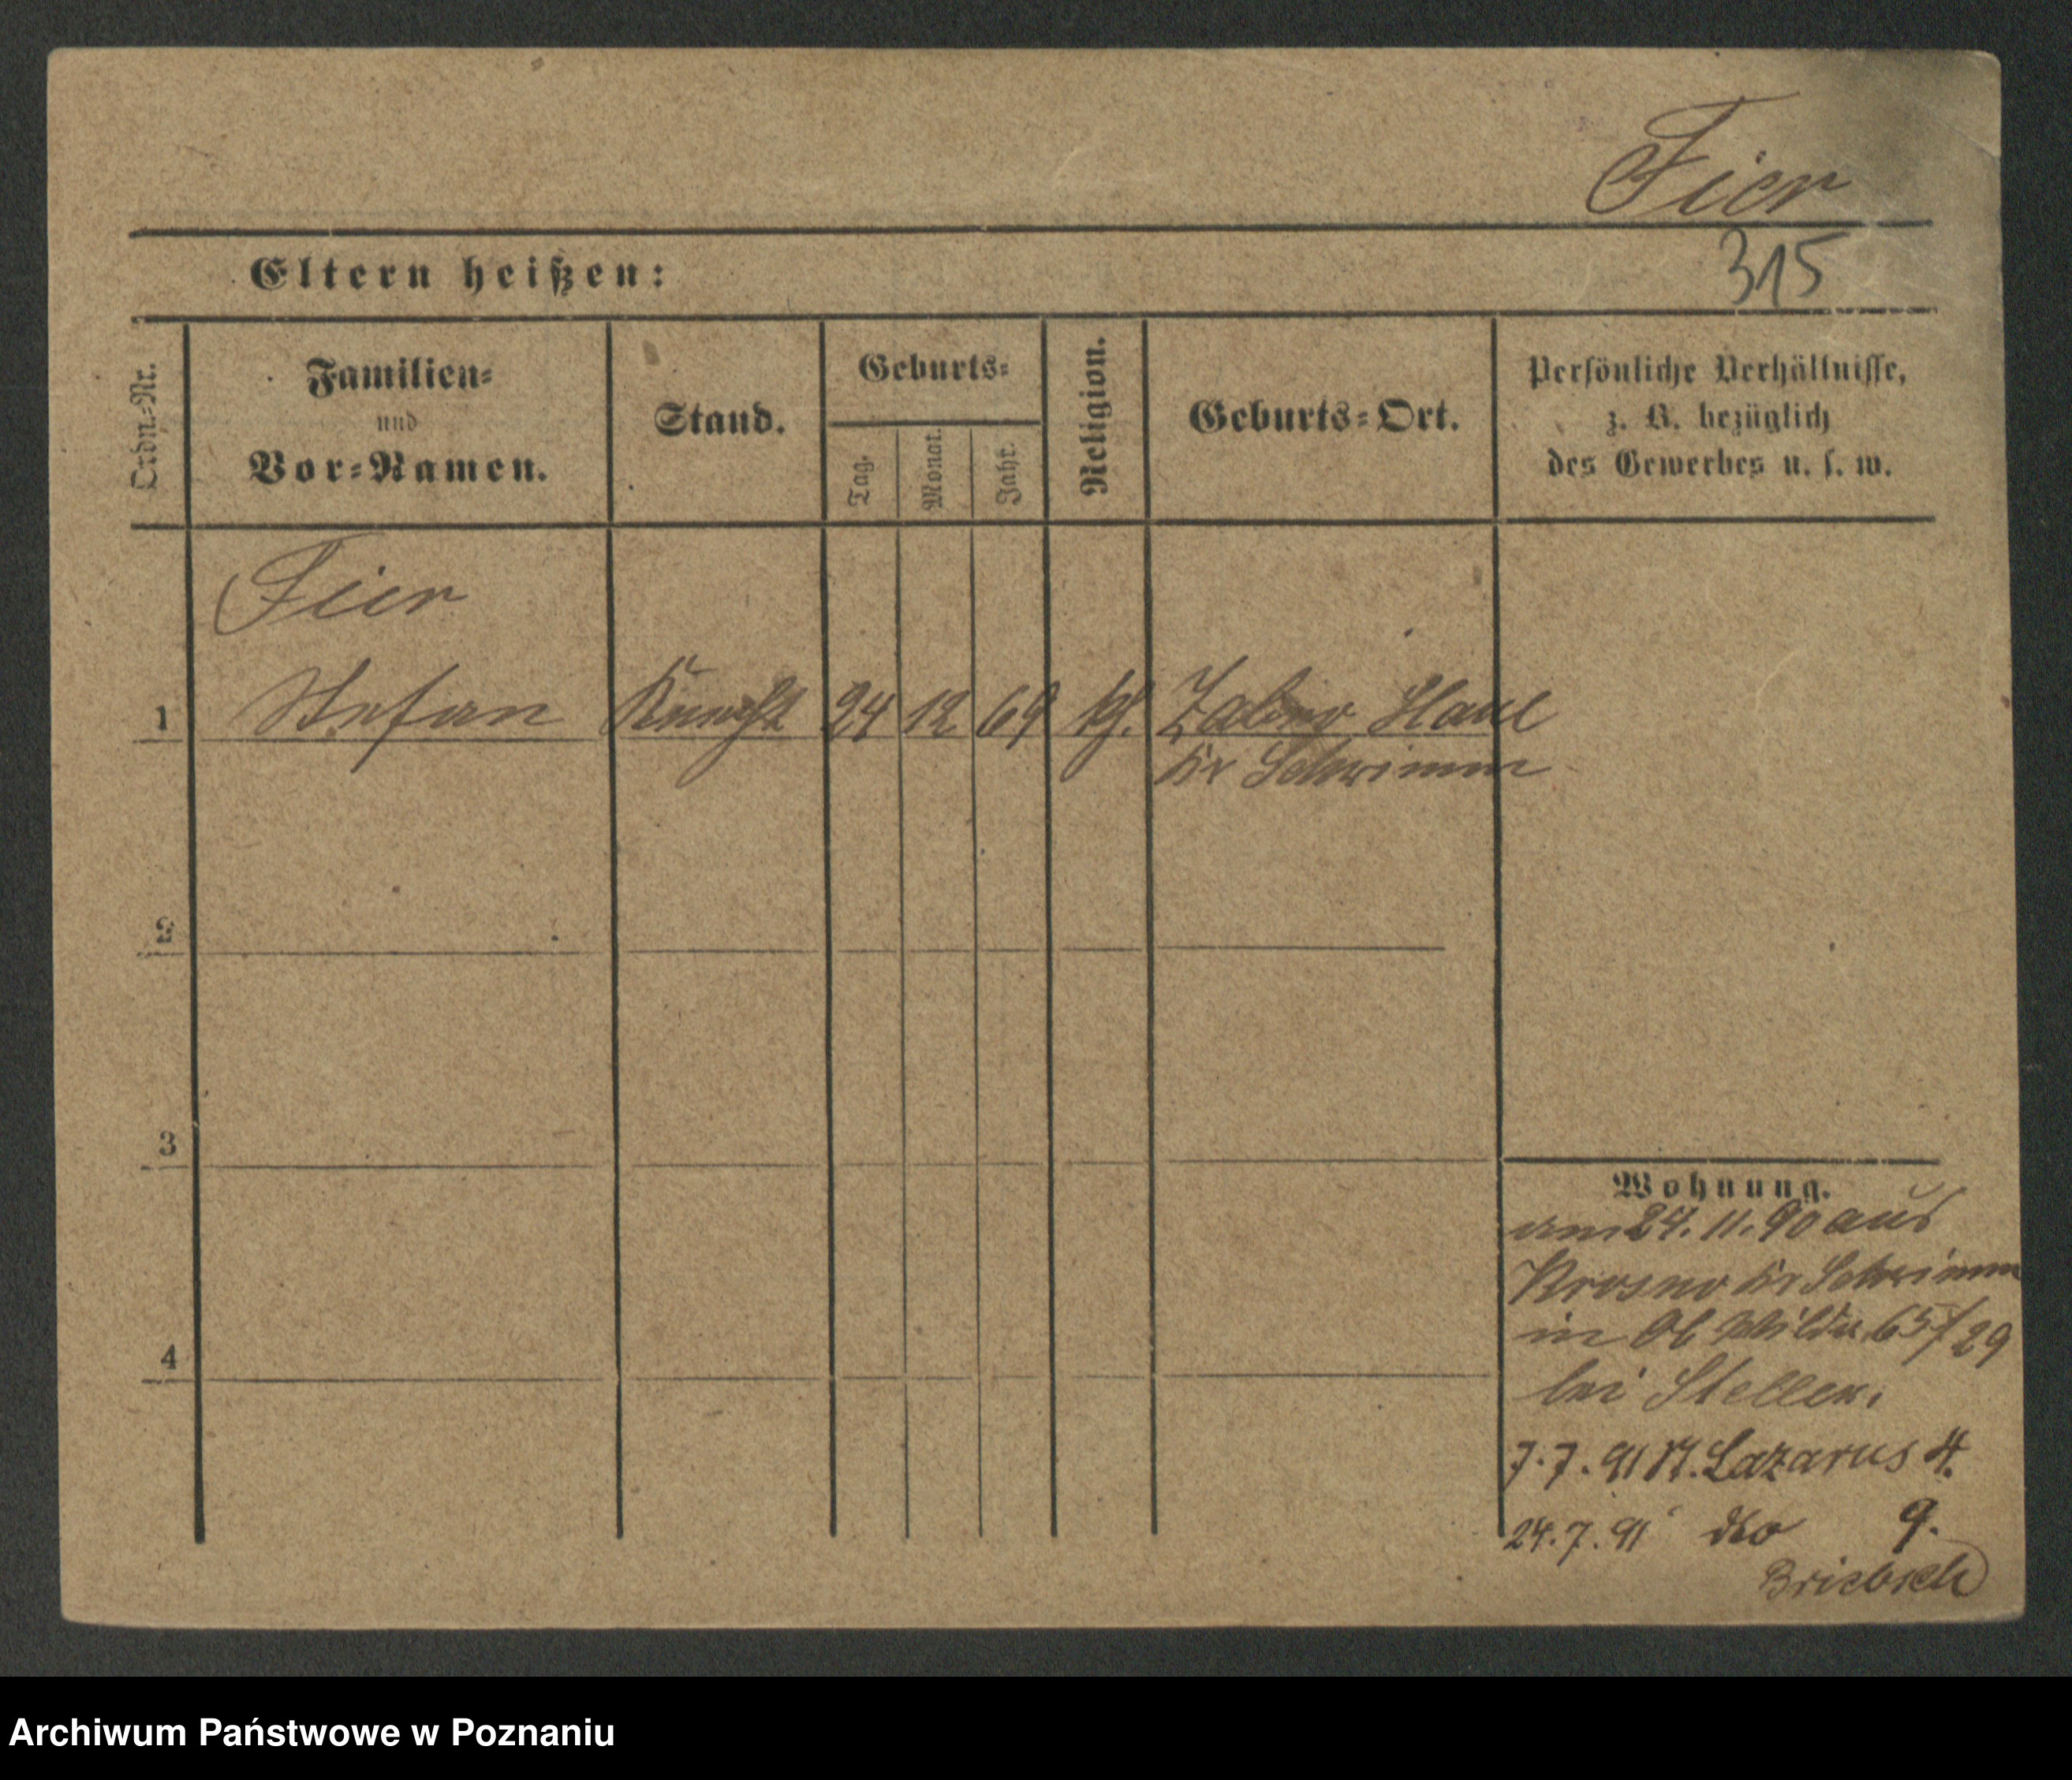 Fier
Eltern heißen:
315
Ordn.-Nr.
Familien-
und
Vor-Namen.
Stand.
Geburts-
Tag.
Monat.
Jahr.
Religion.
Geburts-Ort.
Persönliche Verhältnisse,
z. B. bezüglich
des Gewerbes u. s. w.
Fier
1 Stefan Knecht 24 12 69 kth. Zabno Haul
Kr Schrimm
2
3
4
Wohnung.
am 24. 11. 90 aus
Krosno Kr Schrimm
in Ob Wilda 65/29
bei Steller.
7. 7. 91 St. Lazarus 4.
24. 7. 91 dto 9.
Briebsch
Archiwum Państwowe w Poznaniu